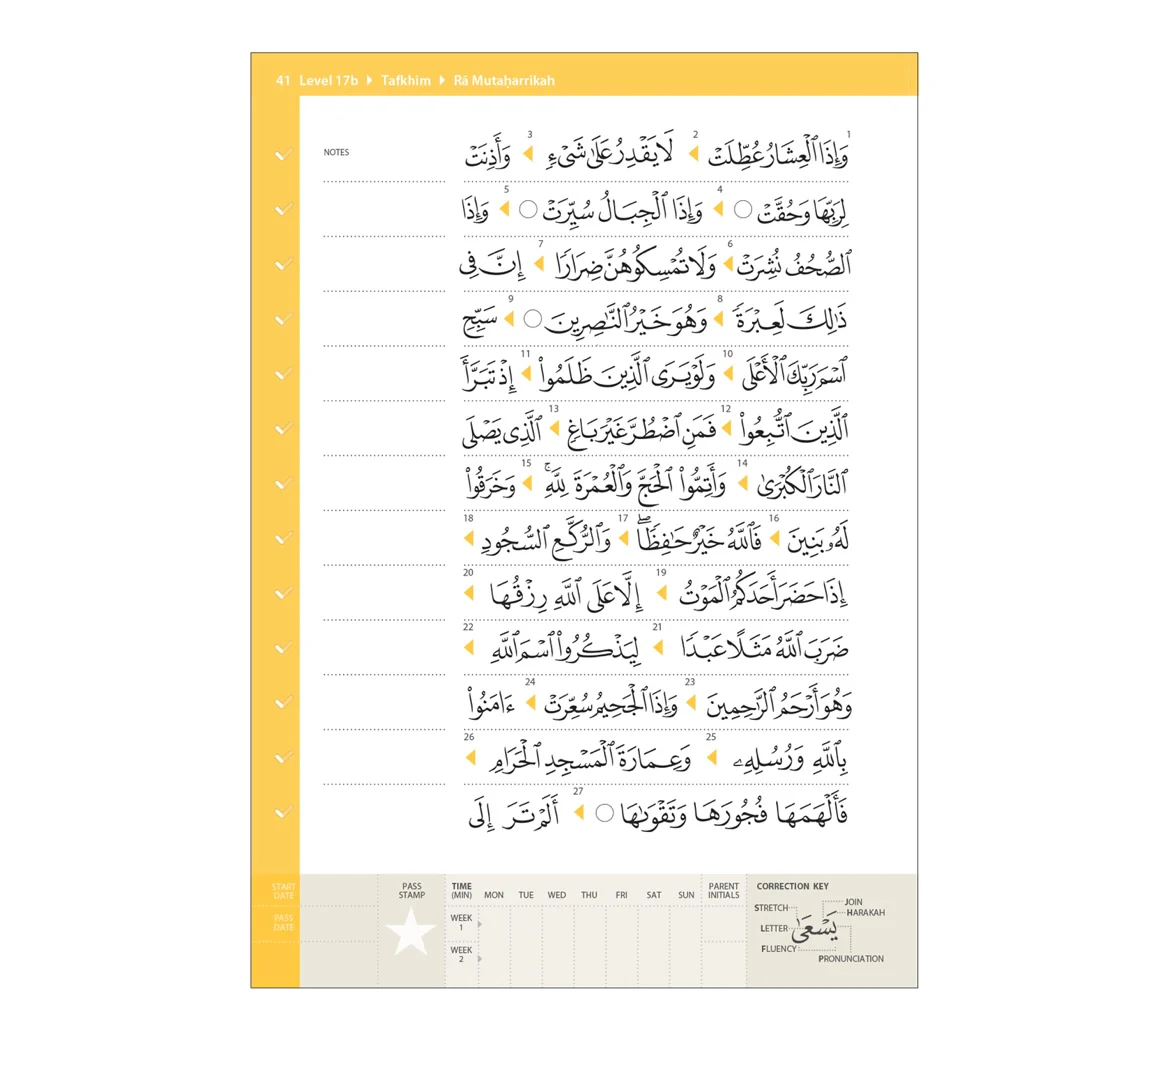 41 Level 17b ▶ Tafkhim ▶ Rā Mutaḥarrikah
NOTES
1 وَإِذَا ٱلْعِشَارُ عُطِّلَتْ 2 لَا يَقْدِرُ عَلَىٰ شَىْءٍ 3 وَأَذِنَتْ
لِرَبِّهَا وَحُقَّتْ ○ 4 وَإِذَا ٱلْجِبَالُ سُيِّرَتْ ○ 5 وَإِذَا
ٱلصُّحُفُ نُشِرَتْ 6 وَلَا تُمْسِكُوهُنَّ ضِرَارًا 7 إِنَّ فِى
ذَٰلِكَ لَعِبْرَةً 8 وَهُوَ خَيْرُ ٱلنَّـٰصِرِينَ ○ 9 سَبِّحِ
ٱسْمَ رَبِّكَ ٱلْأَعْلَى 10 وَلَوْ يَرَى ٱلَّذِينَ ظَلَمُوا۟ 11 إِذْ تَبَرَّأَ
ٱلَّذِينَ ٱتُّبِعُوا۟ 12 فَمَنِ ٱضْطُرَّ غَيْرَ بَاغٍ 13 ٱلَّذِى يَصْلَى
ٱلنَّارَ ٱلْكُبْرَىٰ 14 وَأَتِمُّوا۟ ٱلْحَجَّ وَٱلْعُمْرَةَ لِلَّهِ ۚ 15 وَخَرَقُوا۟
لَهُۥ بَنِينَ 16 فَٱللَّهُ خَيْرٌ حَـٰفِظًا ۖ 17 وَٱلرُّكَّعِ ٱلسُّجُودِ 18
إِذَا حَضَرَ أَحَدَكُمُ ٱلْمَوْتُ 19 إِلَّا عَلَى ٱللَّهِ رِزْقُهَا 20
ضَرَبَ ٱللَّهُ مَثَلًا عَبْدًا 21 لِيَذْكُرُوا۟ ٱسْمَ ٱللَّهِ 22
وَهُوَ أَرْحَمُ ٱلرَّٰحِمِينَ 23 وَإِذَا ٱلْجَحِيمُ سُعِّرَتْ 24 ءَامَنُوا۟
بِٱللَّهِ وَرُسُلِهِۦ 25 وَعِمَارَةَ ٱلْمَسْجِدِ ٱلْحَرَامِ 26
فَأَلْهَمَهَا فُجُورَهَا وَتَقْوَىٰهَا ○ 27 أَلَمْ تَرَ إِلَى
START DATE
PASS DATE
PASS STAMP
TIME (MIN) MON TUE WED THU FRI SAT SUN
WEEK 1
WEEK 2
PARENT INITIALS
CORRECTION KEY
STRETCH
LETTER
FLUENCY
يَسْعَىٰ
JOIN
HARAKAH
PRONUNCIATION